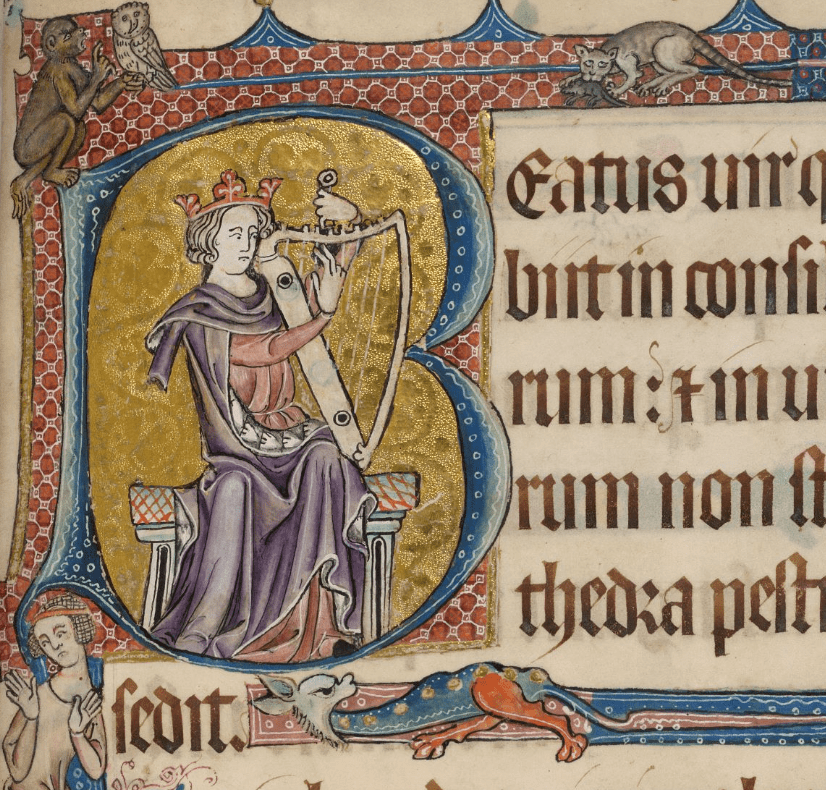 BEatus uir q
biit in consi
rum: ⁊ in u
rum non st
thedra pest
sedit.